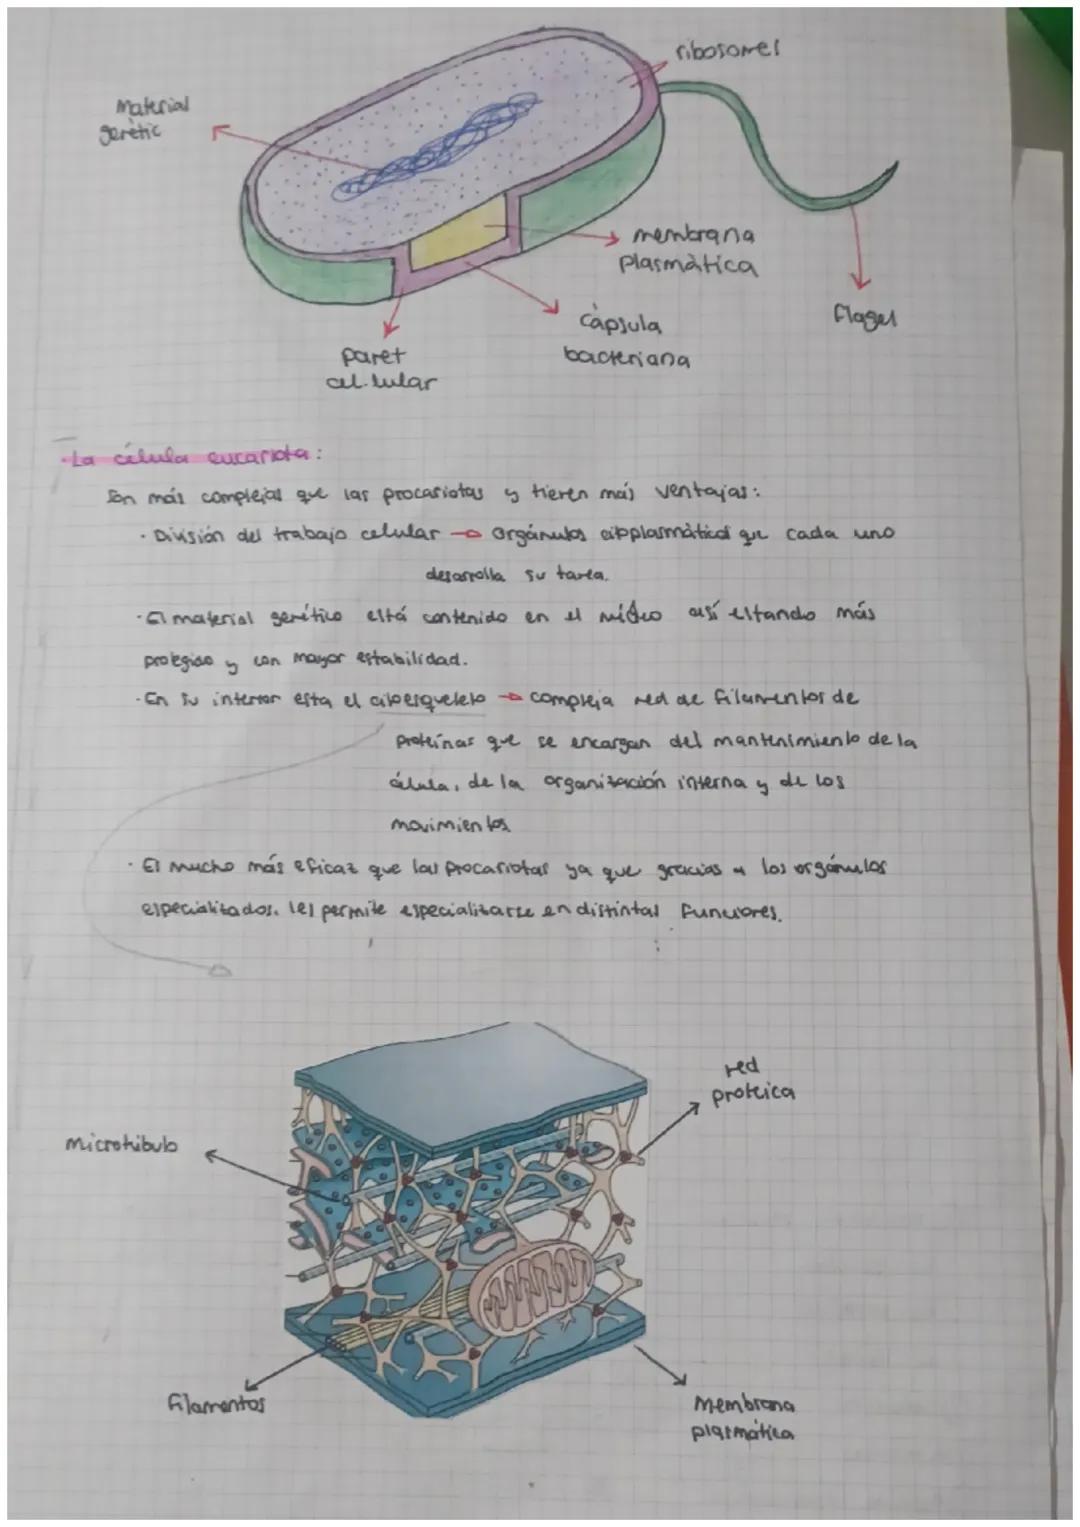 ribosomes
Material
genètic
membrana
plasmàtica
Flagel
càpsula
bacteriana
paret
cel·lular
·La célula eucariota:
Son más complejas que las procariotas y tienen más ventajas:
· División del trabajo celular → Orgánulos citoplasmáticos que cada uno
desarrolla su tarea.
·El material genético está contenido en el núcleo así estando más
protegido y con mayor estabilidad.
·En su interior esta el citoesqueleto → compleja red de filamentos de
proteínas que se encargan del mantenimiento de la
célula, de la organización interna y de los
movimientos
· Es mucho más eficaz que las procariotas ya que gracias a los orgánulos
especializados, les permite especializarse en distintas funciones.
red
proteica
Microtúbulo
Filamentos
Membrana
plasmática